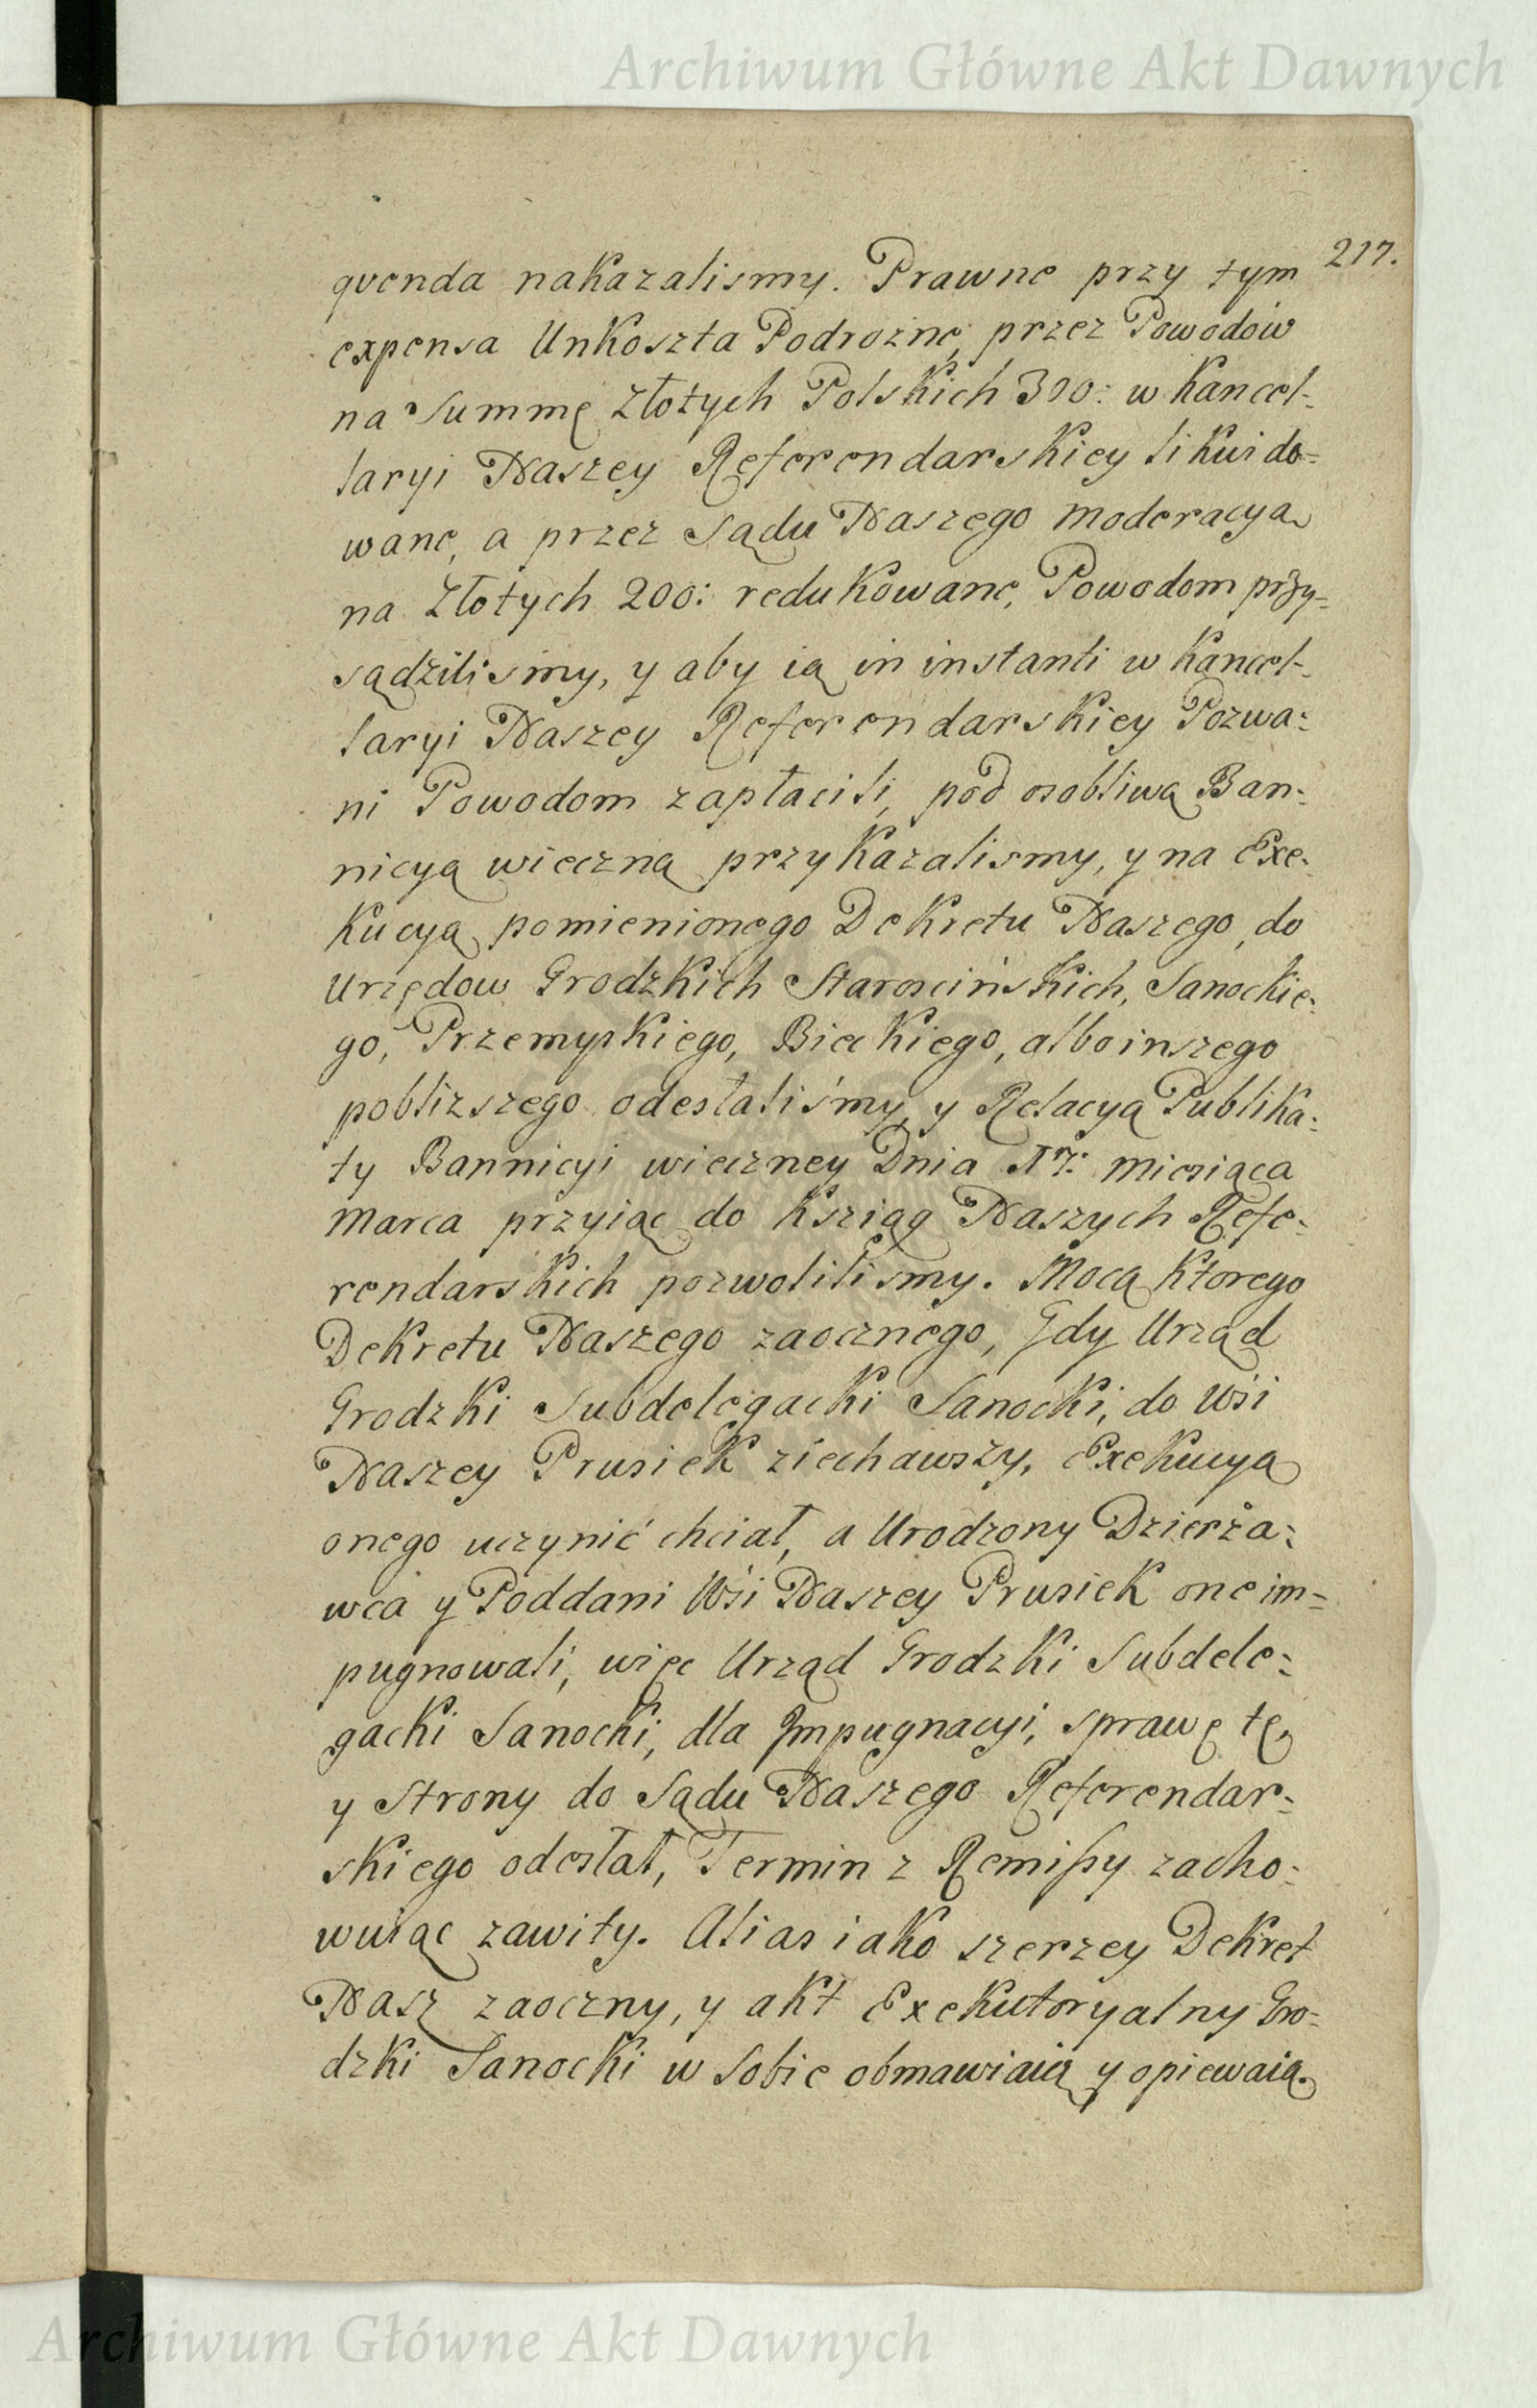 Archiwum Główne Akt Dawnych
217.
quenda nakazalismy. Prawne przy tym
expensa Unkoszta Podrozne, przez Powodow
na Summę Złotych Polskich 300: w Kancel-
laryi Naszey Referendarskiey likwido=
wane, a przez Sądu Naszego moderacyą
na Złotych 200: redukowane, Powodom przy-
sądzilismy, y aby ią in instanti w Kancel-
laryi Naszey Referendarskiey Pozwa:
ni Powodom zapłacili, pod osobliwą Ban:
nicyą wieczną przykazalismy, y na Exe:
kucyą pomienionego Dekretu Naszego, do
Urzędow Grodzkich Starościńskich, Sanockie:
go, Przemyskiego, Bieckiego, albo inszego
poblizszego odesłaliśmy, y Relacyą Publika:
ty Bannicyi wieczney Dnia 17: Miesiąca
Marca przyiąc do Ksziąg Naszych Refe-
rendarskich pozwolilismy. Mocą ktorego
Dekretu Naszego zaocznego, Gdy Urząd
Grodzki Subdelegacki Sanocki, do Wsi
Naszey Prusiek ziechawszy, Exekucyą
onego uczynić chciał, a Urodzony Dzierża:
wca y Poddani Wsi Naszey Prusiek one im=
pugnowali, więc Urząd Grodzki Subdele:
gacki Sanocki, dla Impugnacyi, sprawę tę,
y Strony do Sądu Naszego Referendar:
skiego odesłał, Termin z Remissy zacho:
wuiąc zawity. Alias iako szerzey Dekret
Nasz zaoczny, y akt Exekutoryalny Gro-
dzki Sanocki w Sobie obmawiaią y opiewaią.
Archiwum Główne Akt Dawnych